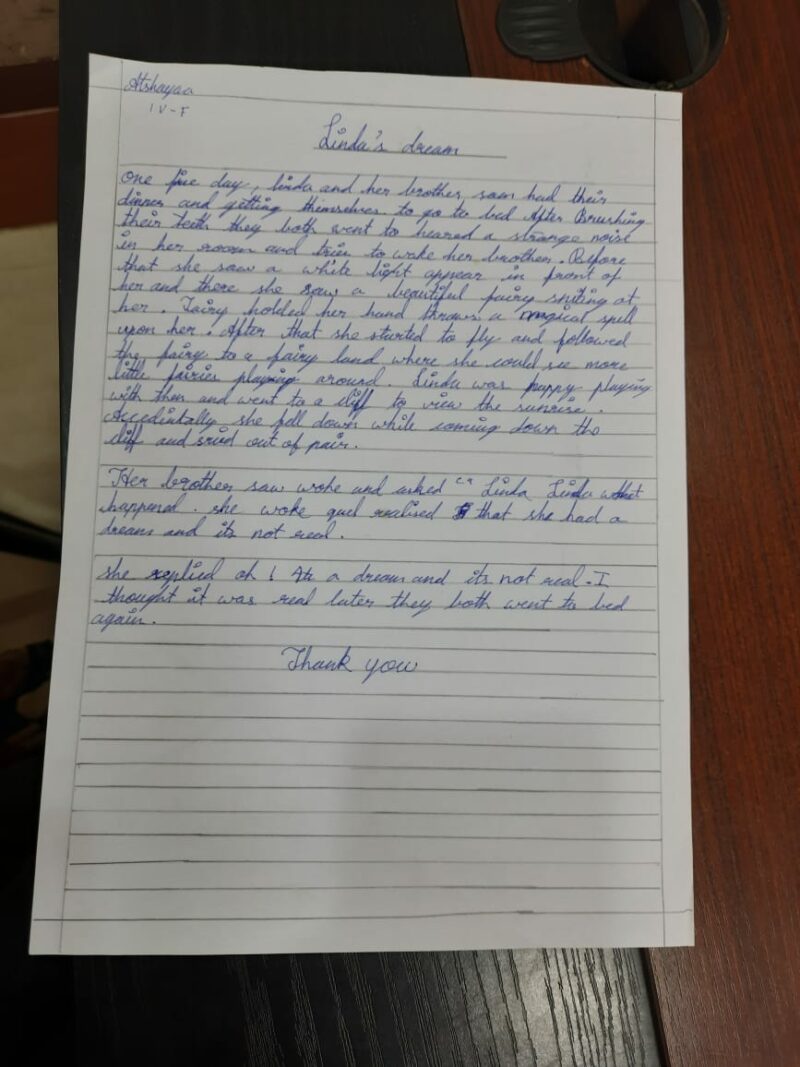 Atshayaa
IV-F
Linda's dream
One fine day, linda and her brother, sam had their
dinner and getting themselves to go to bed After Brushing
their teeth they both went to heared a strange noise
in her room and tries to wake her brother. Before
that she saw a white light appear in front of
her and there she saw a beautiful fairy smiling at
her. Fairy holded her hand throws a magical spell
upon her. After that she started to fly and followed
the fairy to a fairy land where she could see more
little fairies playing around. Linda was happy playing
with then and went to a cliff to view the sunrise.
Accedintally she fell down while coming down the
cliff and out of pain.
Her brother saw woke and asked " Linda Linda what
happened. she woke realised that she had a
dream and its not real.
she replied oh ! Its a dream and its not real. I
thought it was real later they both went to bed
again.
Thank you